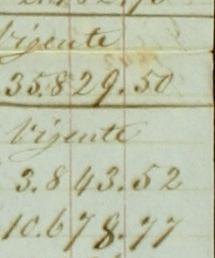 Vigente
35.829.50
Vigente
3.843.52
10.678.77